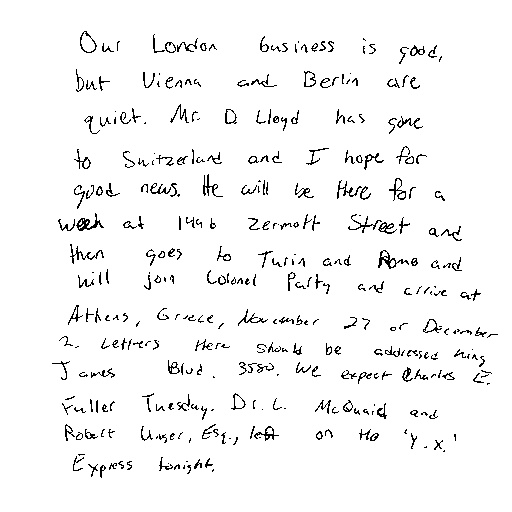 Our London business is good,
but Vienna and Berlin are
quiet. Mr. D. Lloyd has gone
to Switzerland and I hope for
good news. He will be there for a
week at 1496 Zermott Street and
then goes to Turin and Rome and
will join Colonel Party and arrive at
Athens, Greece, November 27 or December
2. Letters there should be addressed King
James Blvd. 3580. We expect Charles E.
Fuller Tuesday. Dr. L. McQuaid and
Robert Unger, Esq., left on the 'Y.X.'
Express tonight.